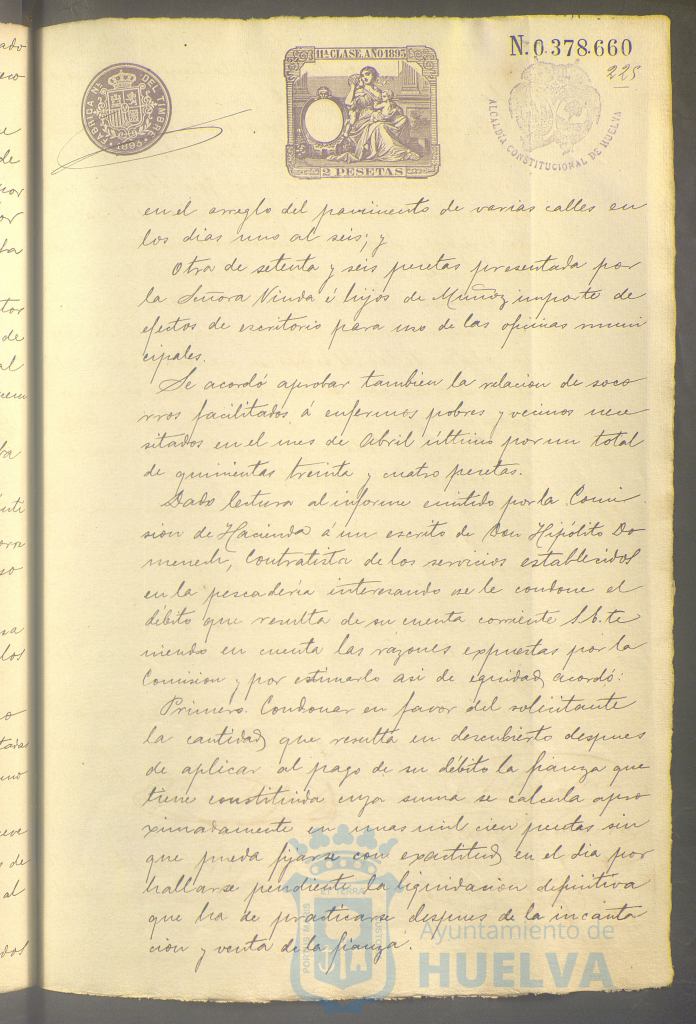 11ª CLASE. AÑO 1893
N. 0.378.660
225
FABRICA NAL. DEL TIMBRE
1893
2 PESETAS
ALCALDÍA CONSTITUCIONAL DE HUELVA
en el arreglo del pavimento de varias calles en
los dias uno al seis; y
Otra de setenta y seis pesetas presentada por
la Señora Viuda é hijos de Muñoz importe de
efectos de escritorio para uso de las oficinas muni
cipales.
Se acordó aprobar tambien la relacion de soco
rros facilitados á enfermos pobres y vecinos nece
sitados en el mes de Abril último por un total
de quinientas treinta y cuatro pesetas.
Dado lectura al informe emitido por la Comi
sion de Hacienda á un escrito de Don Hipólito Do
menech, Contratista de los servicios establecidos
en la pescadería interesando se le condone el
débito que resulta de su cuenta corriente S.E. te
niendo en cuenta las razones expuestas por la
Comision y por estimarlo asi de equidad acordó:
Primero. Condonar en favor del solicitante
la cantidad que resulta en descubierto despues
de aplicar al pago de su débito la fianza que
tiene constituida cuya suma se calcula apro
ximadamente en unas mil cien pesetas sin
que pueda fijarse con exactitud en el dia por
hallarse pendiente la liquidacion definitiva
que ha de practicarse despues de la incauta
cion y venta de la fianza.
Ayuntamiento de
HUELVA